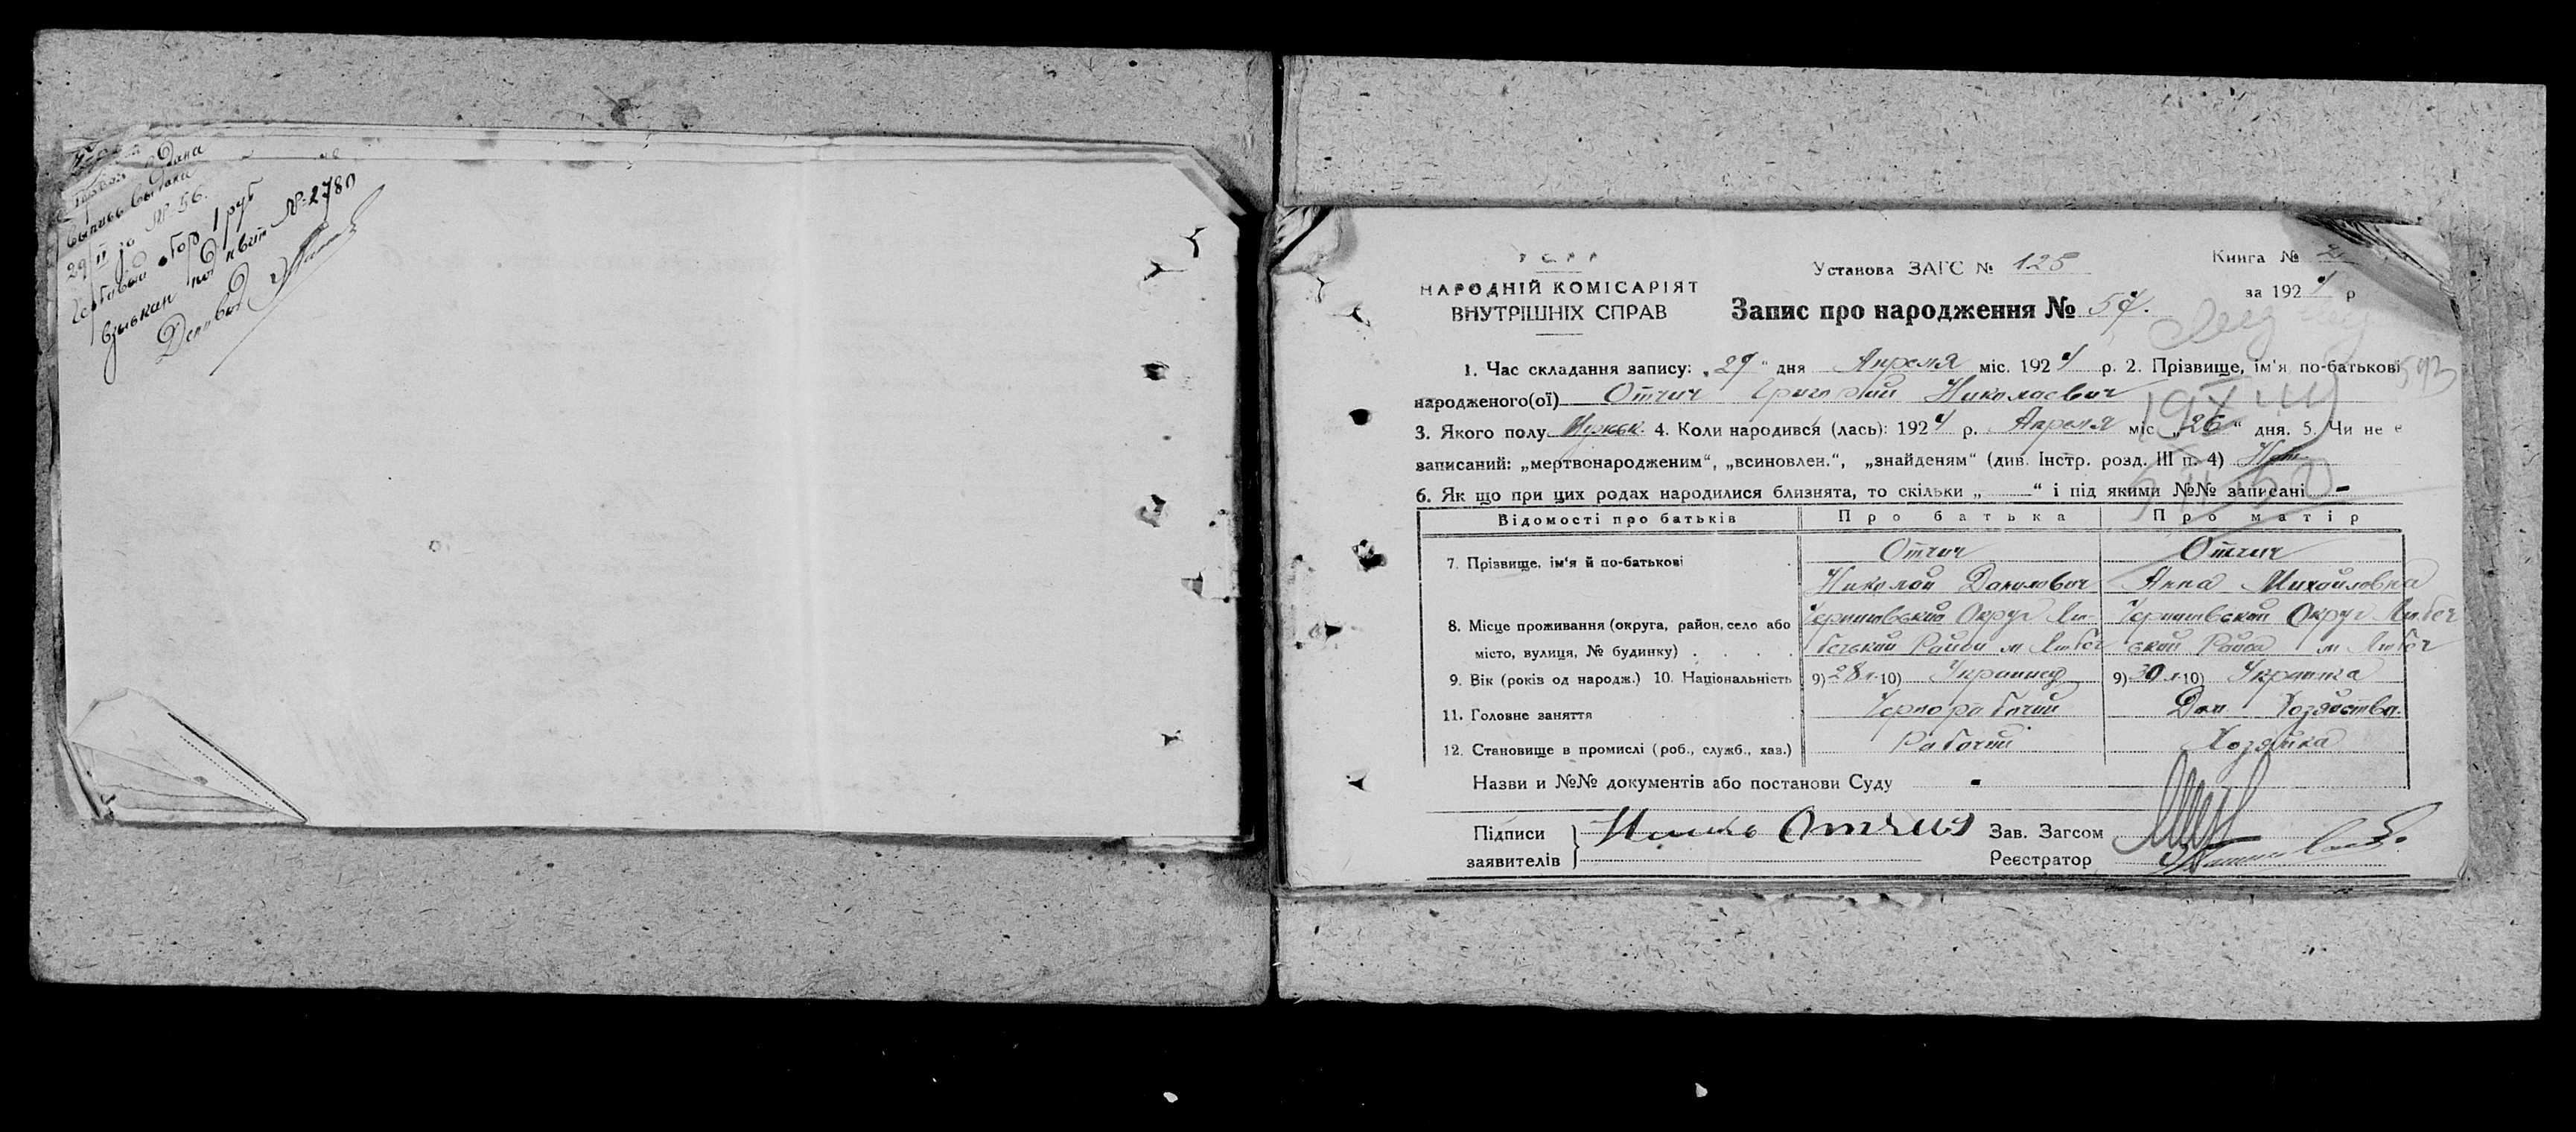 выдана
выпись выдана
29/II за № 56.
Гербовый сбор 1 руб
взыскан под квит № 2780
Деловод
УСРР
НАРОДНІЙ КОМІСАРІЯТ
ВНУТРІШНІХ СПРАВ
Установа ЗАГС № 125
Книга № 2
за 1924 р
Запис про народження № 57.
1. Час складання запису: „29“ дня Апреля міс. 1924 р. 2. Прізвище, ім'я, по-батькові
народженого(ої) Отчич Григорий Николаевич
3. Якого полу Мужск. 4. Коли народився (лась): 1924 р. Апреля міс. „26“ дня. 5. Чи не є
записаний: „мертвонародженим“, „всиновлен.“, „знайденям“ (див. Інстр. розд. III п. 4) Нет
6. Як що при цих родах народилися близнята, то скільки „ “ і під якими №№ записані -
Відомості про батьків Про батька Про матір
7. Прізвище, ім'я й по-батькові Отчич Отчич
Николай Данилович Анна Михайловна
8. Місце проживання (округа, район, село або Черниговский Округ Лю- Черниговский Округ Любеч
місто, вулиця, № будинку) бечький Район м Любеч ский Район м Любеч
9. Вік (років од народж.) 10. Національність 9) 28 л. 10) Украинец 9) 30 л. 10) Украинка
11. Головне заняття Чернорабочий Дом. Хозяйство.
12. Становище в промислі (роб., служб., хаз.) Рабочий Хозяйка
Назви и №№ документів або постанови Суду -
Підписи
заявителів
Отчич
Зав. Загсом
Реєстратор